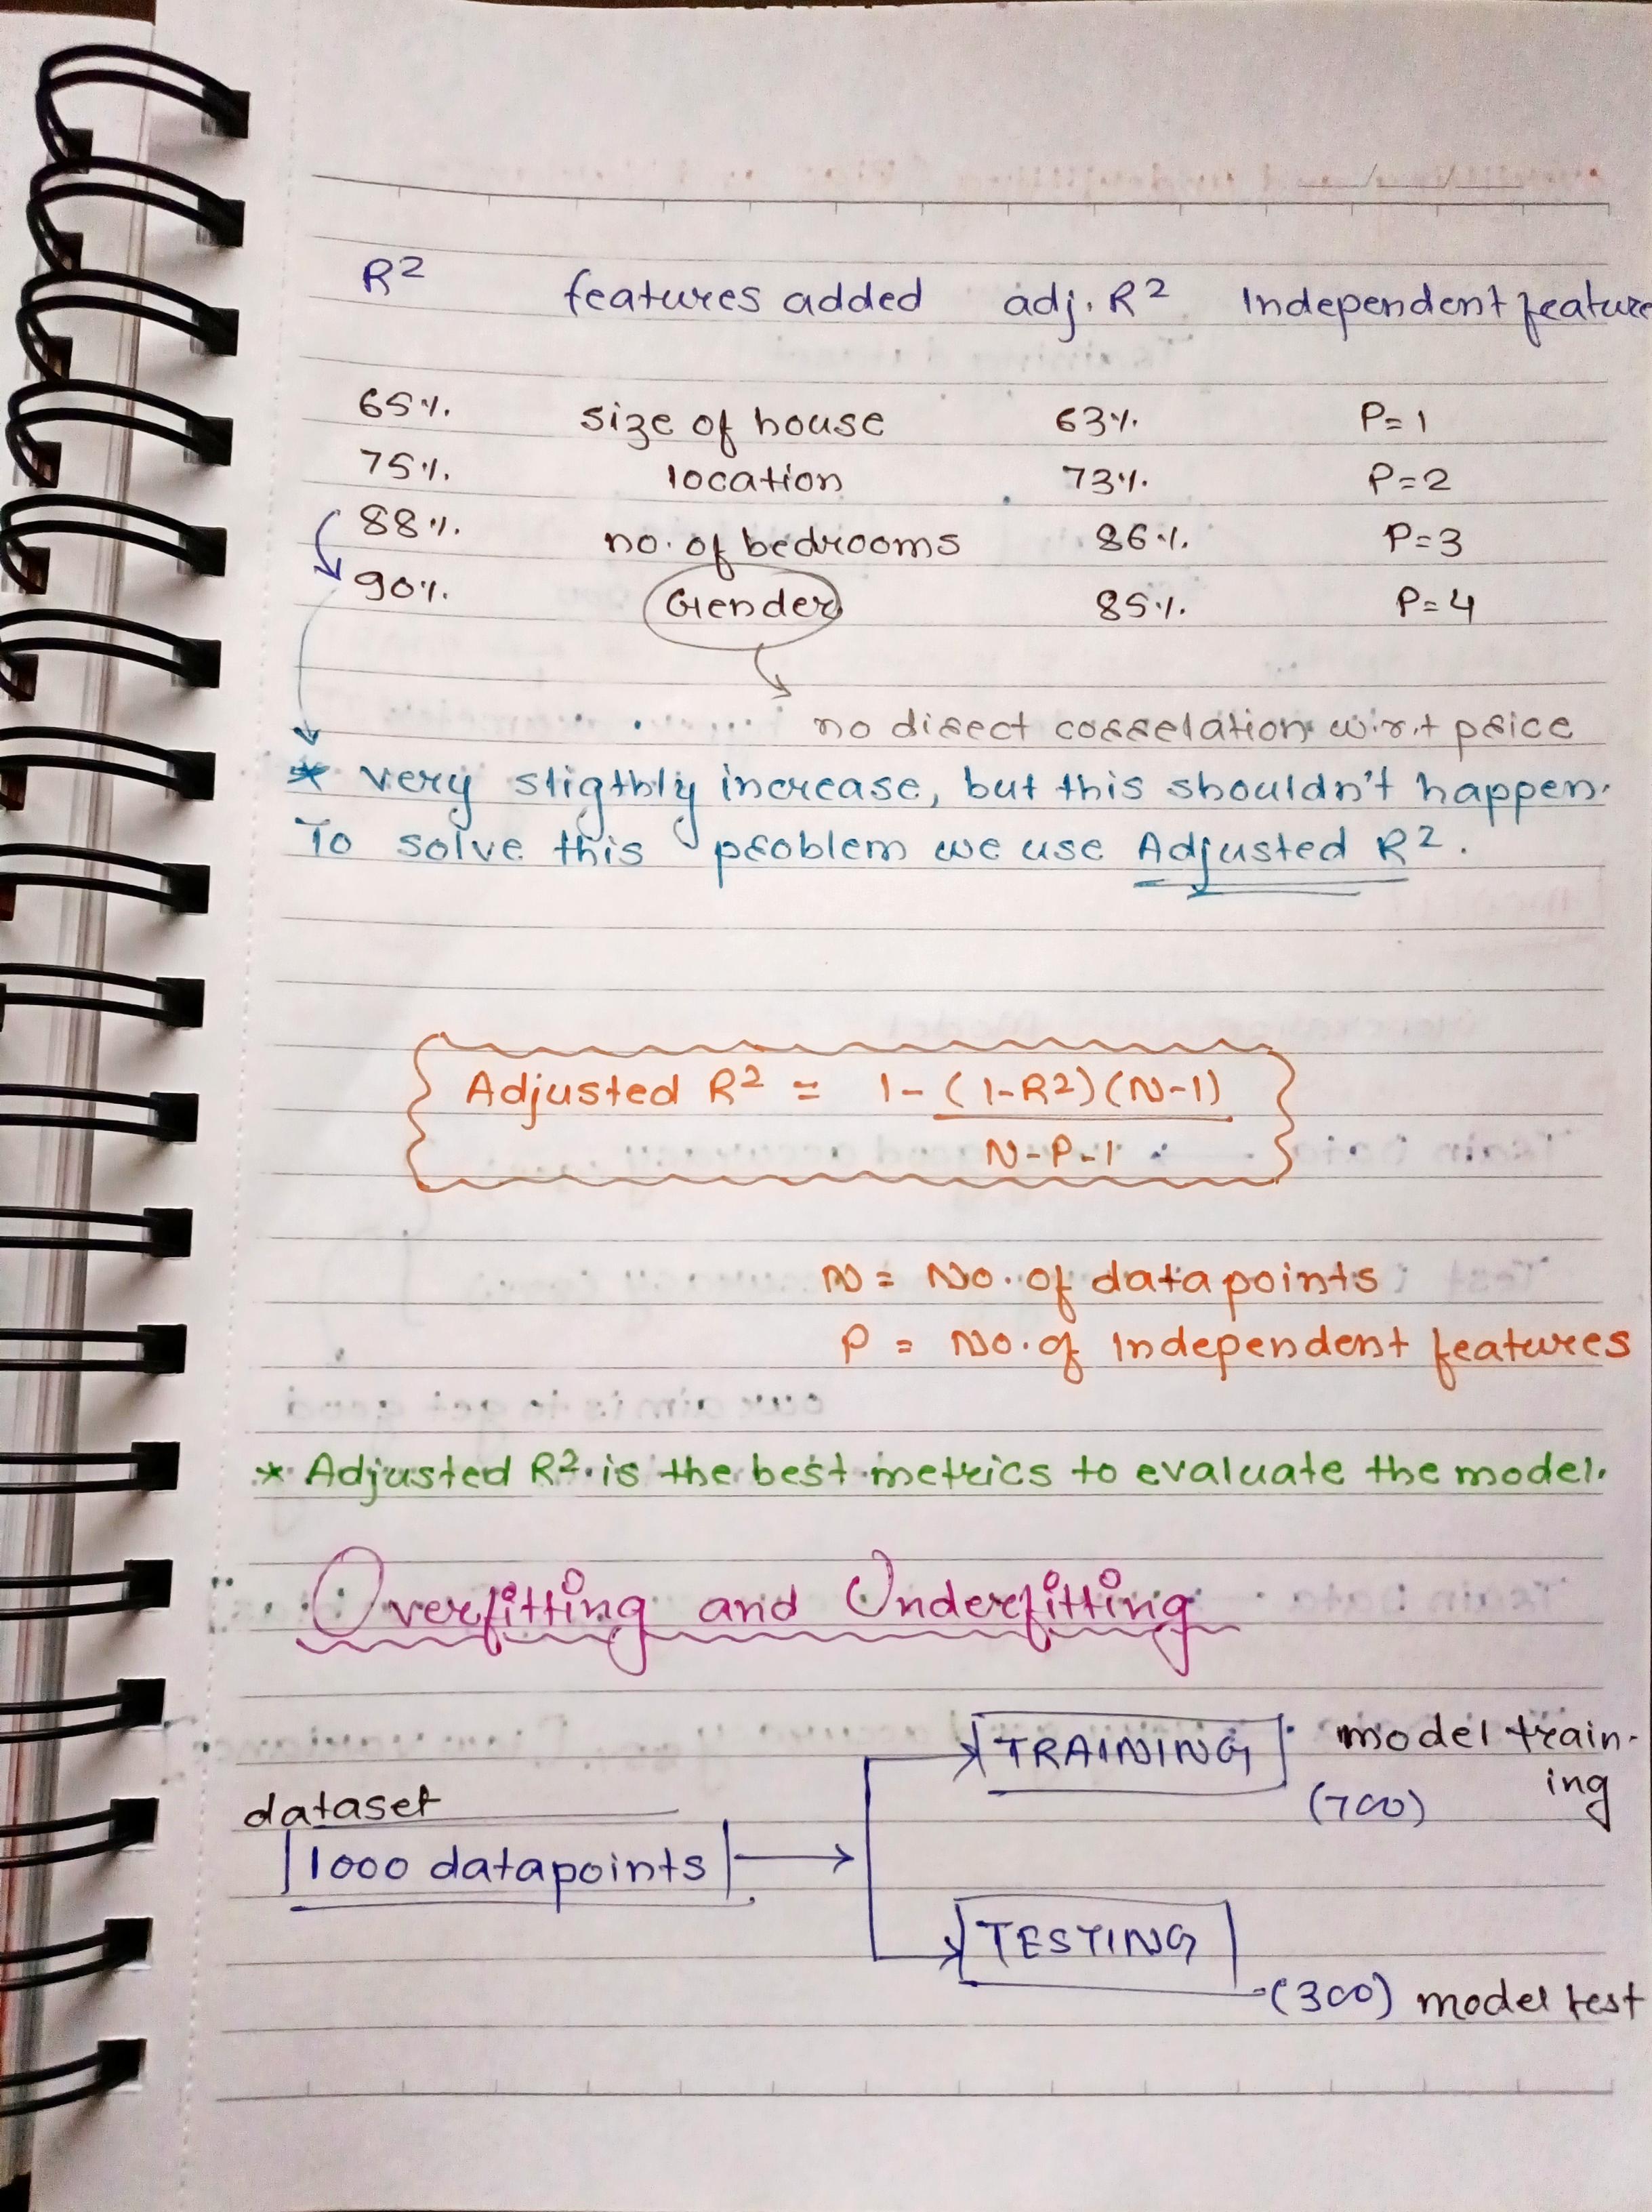 R² features added adj. R² Independent feature
65% size of house 63% P=1
75% location 73% P=2
88% no. of bedrooms 86% P=3
90% Gender 85% P=4
no direct correlation w.r.t price
* very sligthly increase, but this shouldn't happen.
To solve this problem we use Adjusted R².
Adjusted R² = 1-(1-R2)(N-1)
N-P-1
N = No. of datapoints
P = No. of Independent features
* Adjusted R² is the best metrics to evaluate the model.
Overfitting and Underfitting
TRAINING model train-
ing
(700)
dataset
1000 datapoints
TESTING
(300) model test